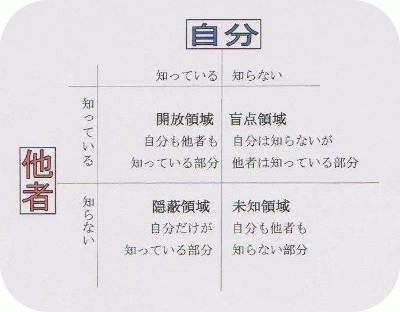 自分
知っている 知らない
他者
知っている
開放領域 盲点領域
自分も他者も 自分は知らないが
知っている部分 他者は知っている部分
知らない
隠蔽領域 未知領域
自分だけが 自分も他者も
知っている部分 知らない部分